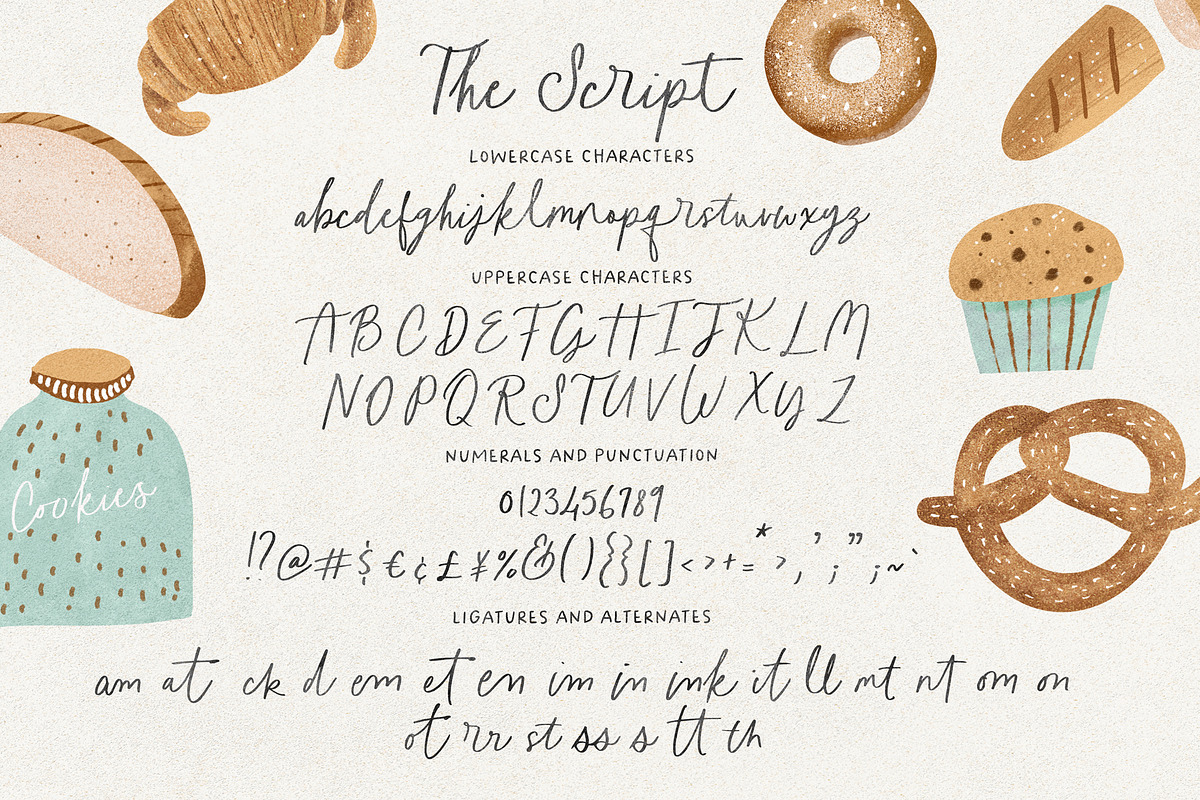 The Script
LOWERCASE CHARACTERS
abcdefghijklmnopqrstuvwxyz
UPPERCASE CHARACTERS
ABCDEFGHIJKLM
NOPQRSTUVWXYZ
NUMERALS AND PUNCTUATION
0123456789
!?@#$€¢£¥%&(){}[]<>+=*>,’;”;~`
LIGATURES AND ALTERNATES
am at ck d em et en im in ink it ll mt nt om on
ot rr st ss s tt th
Cookies